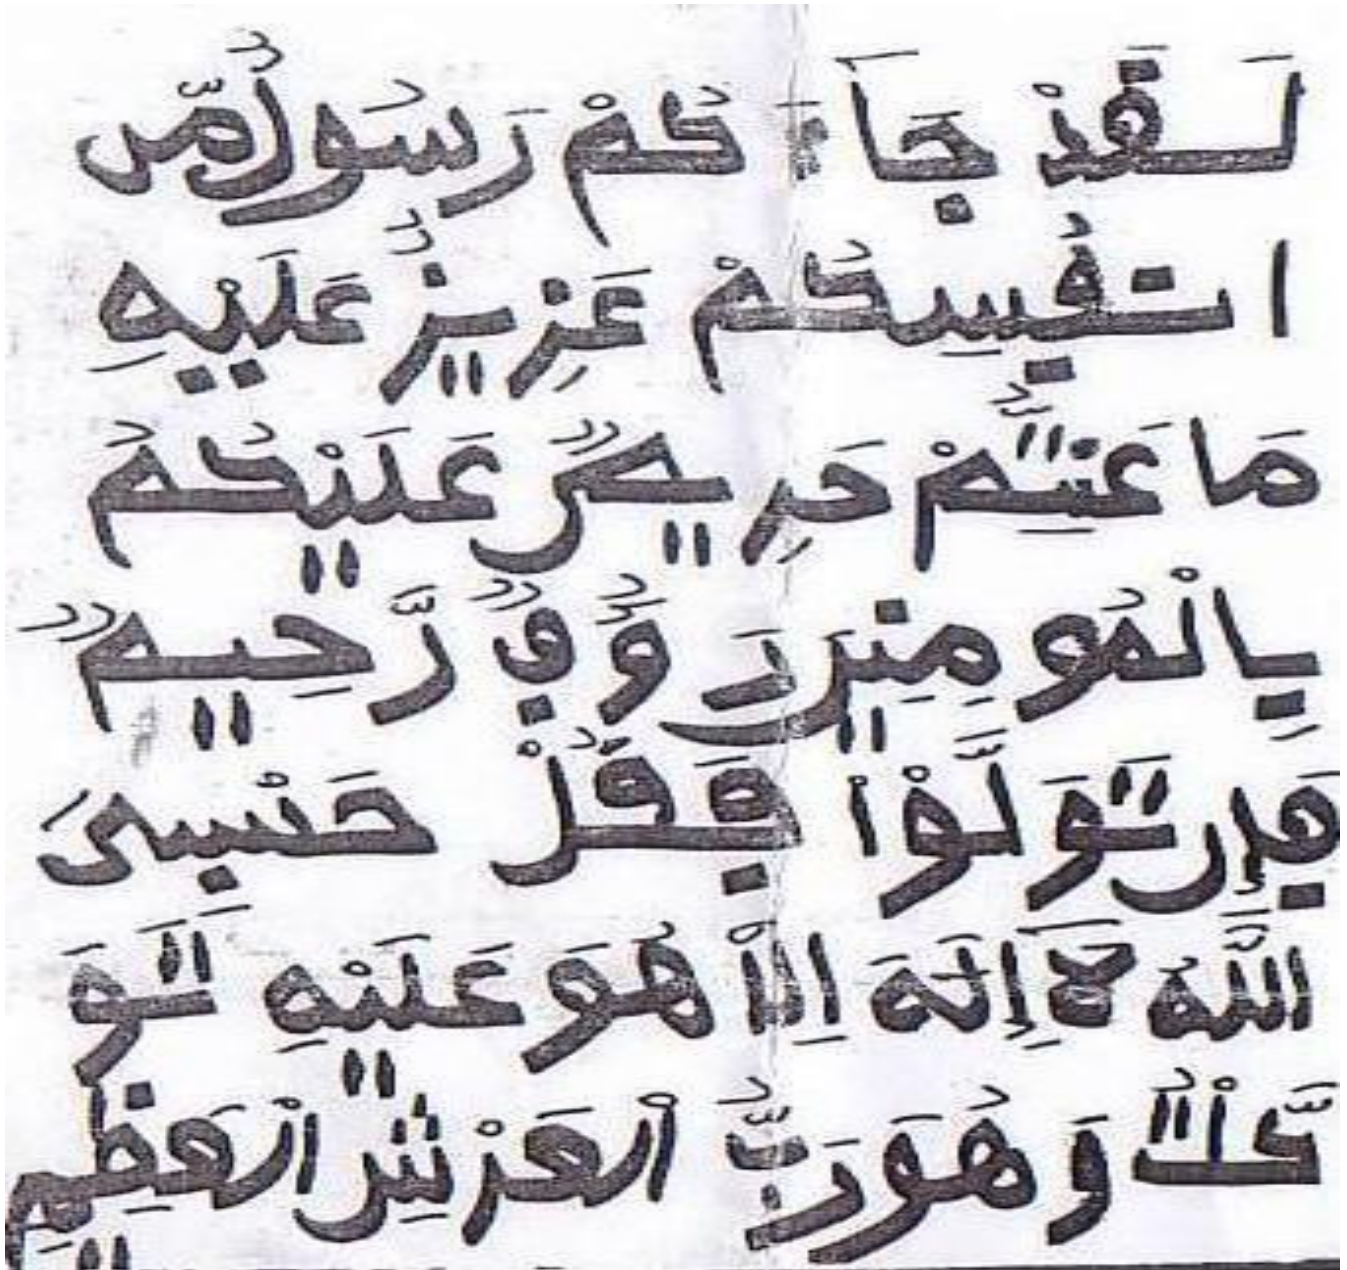 لَقَدْ جَآءَ كُمْ رَسُولٌ مِّن
انفُسِكُمْ عَزِيزٌ عَلَيْهِ
مَا عَنِتُّمْ حَرِيصٌ عَلَيْكُمْ
بِالْمُومِنِينَ رَءُوفٌ رَّحِيمٌ
فَإِن تَوَلَّوْا فَقُلْ حَسْبِىَ
اللَّهُ لَآ إِلَهَ إِلَّا هُوَ عَلَيْهِ تَوَ
كَّلْتُ وَهُوَ رَبُّ الْعَرْشِ الْعَظِيمِ